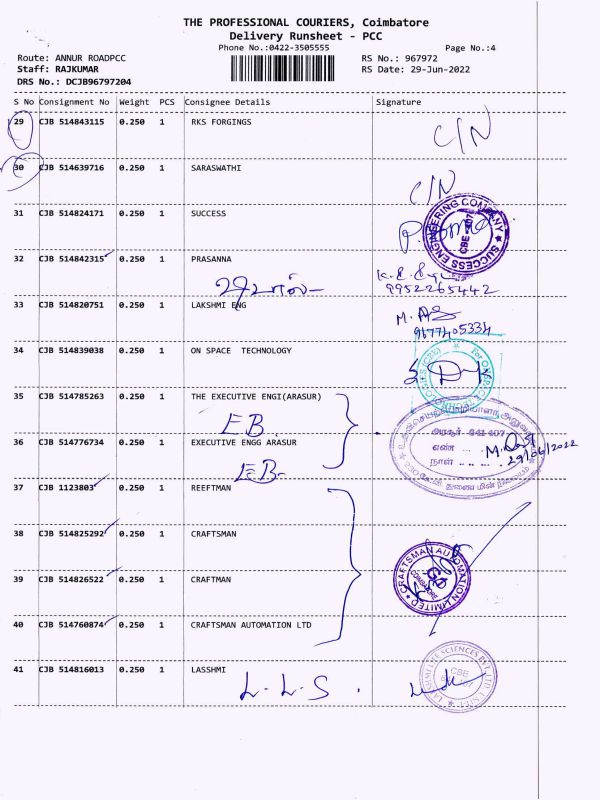 THE PROFESSIONAL COURIERS, Coimbatore
Delivery Runsheet - PCC
Phone No.:0422-3505555
Page No.:4
Route: ANNUR ROADPCC
RS No.: 967972
Staff: RAJKUMAR
RS Date: 29-Jun-2022
DRS No.: DCJB96797204
S No Consignment No Weight PCS Consignee Details Signature
29 CJB 514843115 0.250 1 RKS FORGINGS
C/N
30 CJB 514639716 0.250 1 SARASWATHI
C/N
31 CJB 514824171 0.250 1 SUCCESS
SUCCESS ENGINEERING COMPANY
32 CJB 514842315 0.250 1 PRASANNA
9952265442
33 CJB 514820751 0.250 1 LAKSHMI ENG
9677405334
34 CJB 514839038 0.250 1 ON SPACE TECHNOLOGY
35 CJB 514785263 0.250 1 THE EXECUTIVE ENGI(ARASUR)
E.B.
அரசூர் 641 407
36 CJB 514776734 0.250 1 EXECUTIVE ENGG ARASUR
எண்
நாள்
29/06/2022
E.B.
37 CJB 1123803 0.250 1 REEFTMAN
38 CJB 514825292 0.250 1 CRAFTSMAN
39 CJB 514826522 0.250 1 CRAFTMAN
CRAFTSMAN AUTOMATION LIMITED
COIMBATORE
40 CJB 514760874 0.250 1 CRAFTSMAN AUTOMATION LTD
41 CJB 514816013 0.250 1 LASSHMI
L.L.S.